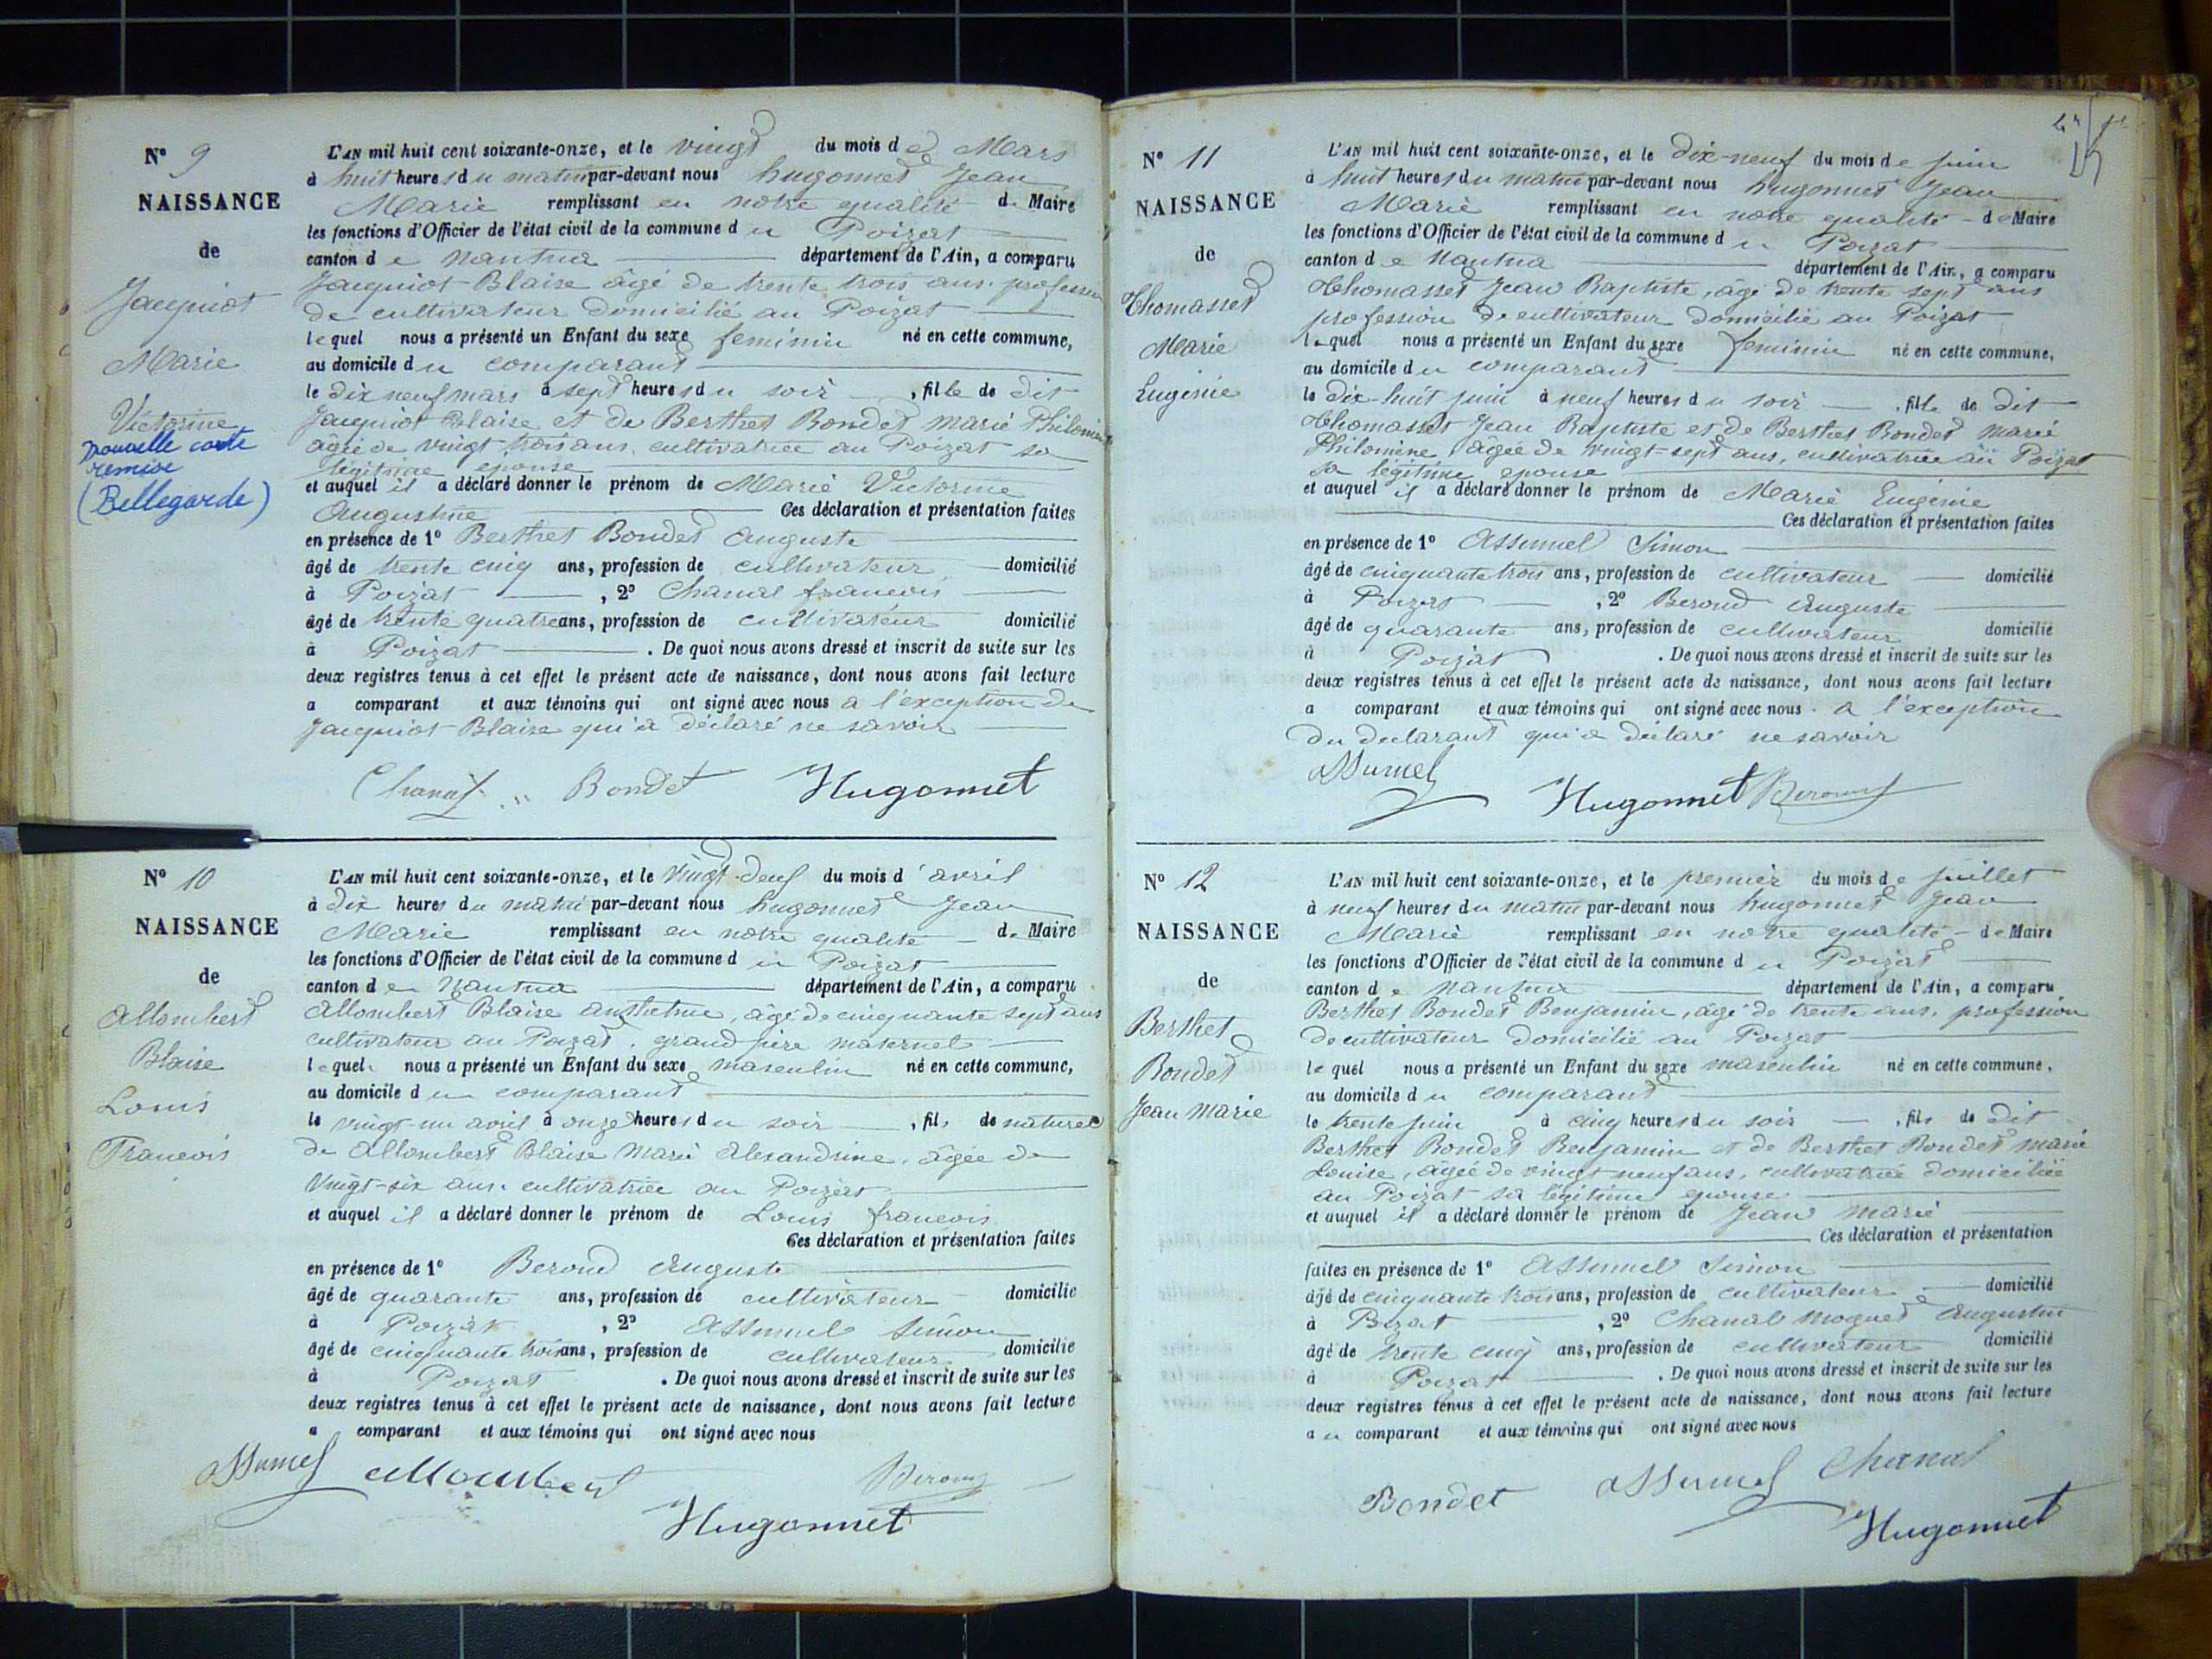 N° 9
NAISSANCE
de
Jacquiot
Marie
Victorine
nouvelle carte
remise
(Bellegarde)
L'AN mil huit cent soixante-onze, et le vingt du mois de Mars
à huit heures du matin par-devant nous hugonnet Jean
Marie remplissant en notre qualité de Maire
les fonctions d'Officier de l'état civil de la commune du Poizat
canton de Nantua département de l'Ain, a comparu
Jacquiot Blaise âgé de trente trois ans, profession
de cultivateur domicilié au Poizat
lequel nous a présenté un Enfant du sexe feminin né en cette commune,
au domicile du comparant
le dix neuf mars à sept heures du soir, fille de dit
Jacquiot Blaise et de Berthet Bondet marie Philomène
âgée de vingt trois ans, cultivatrice au Poizat sa
légitime epouse
et auquel il a déclaré donner le prénom de Marie Victorine
Augustine Ces déclaration et présentation faites
en présence de 1° Berthet Bondet Auguste
âgé de trente cinq ans, profession de cultivateur domicilié
à Poizat, 2° Chanal francois
âgé de trente quatre ans, profession de cultivateur domicilié
à Poizat. De quoi nous avons dressé et inscrit de suite sur les
deux registres tenus à cet effet le présent acte de naissance, dont nous avons fait lecture
a comparant et aux témoins qui ont signé avec nous a l'exception de
Jacquiot Blaise qui a déclaré ne savoir
Chanal Bondet Hugonnet
N° 10
NAISSANCE
de
Allombert
Blaise
Louis
Francois
L'AN mil huit cent soixante-onze, et le vingt-deux du mois d'avril
à dix heures du matin par-devant nous hugonnet Jean
Marie remplissant en notre qualité de Maire
les fonctions d'Officier de l'état civil de la commune du Poizat
canton de Nantua département de l'Ain, a comparu
Allombert Blaise anthelme, âgé de cinquante sept ans
cultivateur au Poizat, grand père maternel
lequel nous a présenté un Enfant du sexe masculin né en cette commune,
au domicile du comparant
le vingt-un avril à onze heures du soir, fils de naturel
de Allombert Blaise Marie Alexandrine, âgée de
vingt-six ans cultivatrice au Poizat
et auquel il a déclaré donner le prénom de Louis francois
Ces déclaration et présentation faites
en présence de 1° Beroud Auguste
âgé de quarante ans, profession de cultivateur domicilié
à Poizat, 2° Assumel Simon
âgé de cinquante trois ans, profession de cultivateur domicilié
à Poizat. De quoi nous avons dressé et inscrit de suite sur les
deux registres tenus à cet effet le présent acte de naissance, dont nous avons fait lecture
a comparant et aux témoins qui ont signé avec nous
Assumel Allombert Beroud
Hugonnet
N° 11
NAISSANCE
de
Thomasset
Marie
Eugénie
L'AN mil huit cent soixante-onze, et le dix-neuf du mois de juin
à huit heures du matin par-devant nous hugonnet Jean
Marie remplissant en notre qualité de Maire
les fonctions d'Officier de l'état civil de la commune du Poizat
canton de Nantua département de l'Ain, a comparu
Thomasset Jean Baptiste, âgé de trente sept ans
profession de cultivateur domicilié au Poizat
lequel nous a présenté un Enfant du sexe feminin né en cette commune,
au domicile du comparant
le dix-huit juin à neuf heures du soir, fille de dit
Thomasset Jean Baptiste et de Berthet Bondet Marie
Philomène, âgée de vingt-sept ans, cultivatrice au Poizat
sa légitime epouse
et auquel il a déclaré donner le prénom de Marie Eugénie
Ces déclaration et présentation faites
en présence de 1° Assumel Simon
âgé de cinquante trois ans, profession de cultivateur domicilié
à Poizat, 2° Beroud Auguste
âgé de quarante ans, profession de cultivateur domicilié
à Poizat. De quoi nous avons dressé et inscrit de suite sur les
deux registres tenus à cet effet le présent acte de naissance, dont nous avons fait lecture
a comparant et aux témoins qui ont signé avec nous. a l'exception
du declarant qui a déclaré ne savoir
Assumel Hugonnet Beroud
N° 12
NAISSANCE
de
Berthet
Bondet
Jean Marie
L'AN mil huit cent soixante-onze, et le premier du mois de juillet
à neuf heures du matin par-devant nous hugonnet Jean
Marie remplissant en notre qualité de Maire
les fonctions d'Officier de l'état civil de la commune du Poizat
canton de Nantua département de l'Ain, a comparu
Berthet Bondet Benjamin, âgé de trente ans, profession
de cultivateur domicilié au Poizat
lequel nous a présenté un Enfant du sexe masculin né en cette commune,
au domicile du comparant
le trente juin à cinq heures du soir, fils de dit
Berthet Bondet Benjamin et de Berthet Bondet marie
Louise, âgée de vingt-neuf ans, cultivatrice domiciliée
au Poizat sa légitime epouse
et auquel il a déclaré donner le prénom de Jean Marie
Ces déclaration et présentation
faites en présence de 1° Assumel Simon
âgé de cinquante trois ans, profession de cultivateur domicilié
à Poizat, 2° Chanal Moguet Augustin
âgé de trente cinq ans, profession de cultivateur domicilié
à Poizat. De quoi nous avons dressé et inscrit de suite sur les
deux registres tenus à cet effet le présent acte de naissance, dont nous avons fait lecture
au comparant et aux témoins qui ont signé avec nous
Bondet Assumel Chanal
Hugonnet